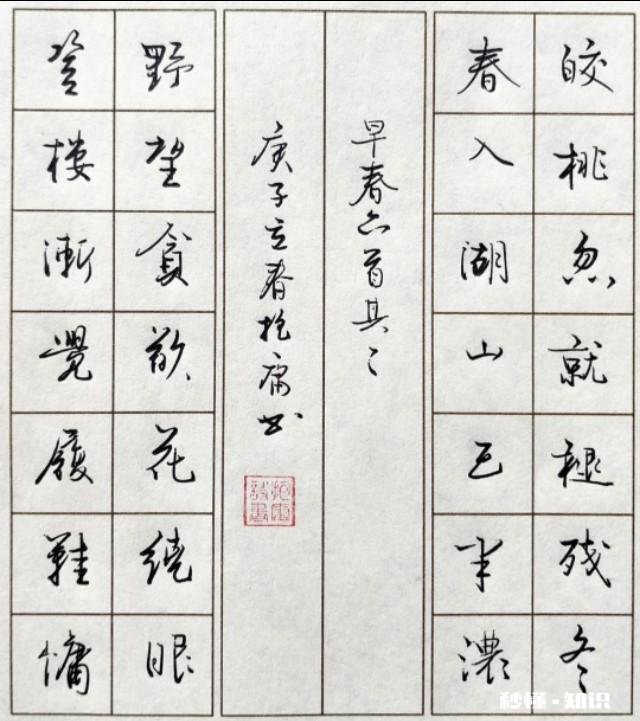 皎桃忽就褪残冬
春入湖山已半濃
早春六首其二
庚子立春抱庸书
野望貪歡花繞眼
登楼漸覺履鞋慵
秒懂·知识